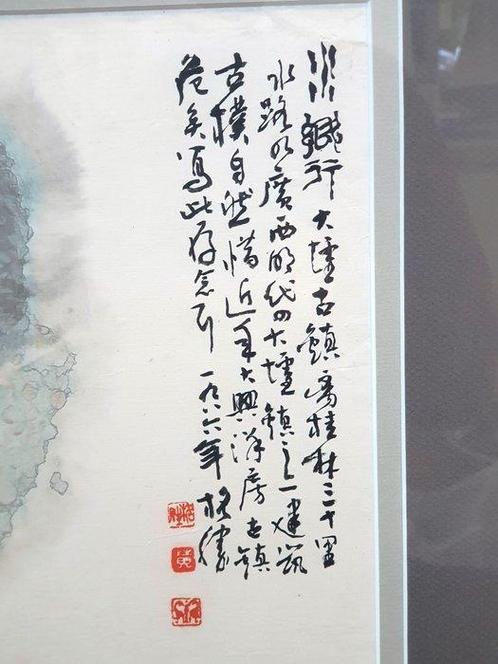 小镇行 大墟古鎮离桂林三十里
水路乃廣西明代四大墟鎮之一建筑
古樸自然惜近年大興洋房古鎮
危矣写此存念耳 一九八六年 格胜